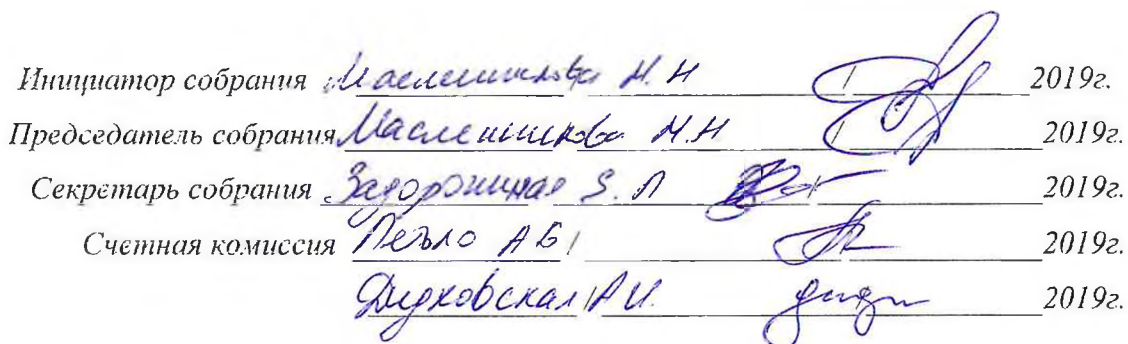 Инициатор собрания Масленникова Н. Н / 2019г.
Председатель собрания Масленникова Н.Н / 2019г.
Секретарь собрания Задорожная З. Л / 2019г.
Счетная комиссия А Б / 2019г.
Дидковская А И. 2019г.